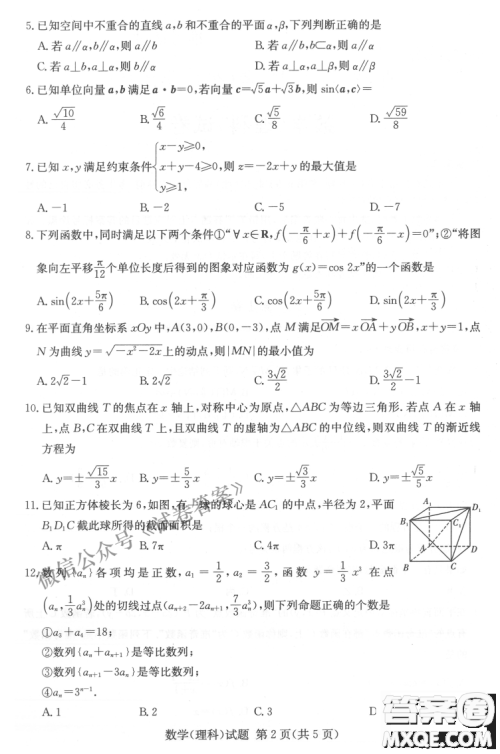 5. 已知空间中不重合的直线 a,b 和不重合的平面 α,β,下列判断正确的是
A. 若 a∥α,b∥α,则 a∥b
B. 若 a∥b,b⊂α,则 a∥α
C. 若 a⊥b,a⊥α,则 b∥α
D. 若 a⊥α,a⊥β,则 α∥β
6. 已知单位向量 a,b 满足 a·b=0,若向量 c=√5a+√3b,则 sin⟨a,c⟩=
A. √10/4
B. √6/4
C. √5/8
D. √59/8
7. 已知 x,y 满足约束条件{x−y⩾0, x+y−4⩾0, y⩾1, 则 z=−2x+y 的最大值是
A. −1
B. −2
C. −5
D. −7
8. 下列函数中,同时满足以下两个条件①“∀x∈R,f(−π/6+x)+f(−π/6−x)=0”;②“将图
象向左平移π/12个单位长度后得到的图象对应函数为 g(x)=cos 2x”的一个函数是
A. sin(2x+5π/6)
B. cos(2x+π/3)
C. cos(2x+5π/6)
D. sin(2x+π/3)
9. 在平面直角坐标系 xOy 中,A(3,0),B(0,−3),点 M 满足OM=xOA+yOB,x+y=1,点
N 为曲线 y=√−x²−2x上的动点,则|MN|的最小值为
A. 2√2−1
B. 2√2
C. 3√2/2
D. 3√2/2−1
10. 已知双曲线 T 的焦点在 x 轴上,对称中心为原点,△ABC 为等边三角形. 若点 A 在 x 轴
上,点 B,C 在双曲线 T 上,且双曲线 T 的虚轴为△ABC 的中位线,则双曲线 T 的渐近线
方程为
A. y=±√15/3x
B. y=±5/3x
C. y=±√3/3x
D. y=±√5/5x
11. 已知正方体棱长为 6,如图,有 球的球心是 AC₁ 的中点,半径为 2,平面
B₁D₁C 截此球所得的截面面积是
A. π
B. 7π
C. 4π
D. 3π
A₁
D₁
B₁
C₁
A
D
B
C
12. 数列{aₙ}各项均是正数,a₁=1/2,a₂=3/2,函数 y=1/3x³ 在点
(aₙ,1/3aₙ³)处的切线过点(aₙ₊₂−2aₙ₊₁,7/3aₙ³),则下列命题正确的个数是
①a₃+a₄=18;
②数列{aₙ+aₙ₊₁}是等比数列;
③数列{aₙ₊₁−3aₙ}是等比数列;
④aₙ=3ⁿ⁻¹.
A. 1
B. 2
C. 3
D
数学(理科)试题 第2页(共5页)
微信公众号《试卷答案》
答案圈
MXQE.COM